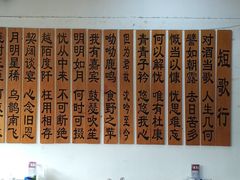 短歌行
对酒当歌 人生几何
譬如朝露 去日苦多
慨当以慷 忧思难忘
何以解忧 唯有杜康
青青子衿 悠悠我心
但为君故 沉吟至今
呦呦鹿鸣 食野之苹
我有嘉宾 鼓瑟吹笙
明明如月 何时可掇
忧从中来 不可断绝
越陌度阡 枉用相存
契阔谈宴 心念旧恩
月明星稀 乌鹊南飞